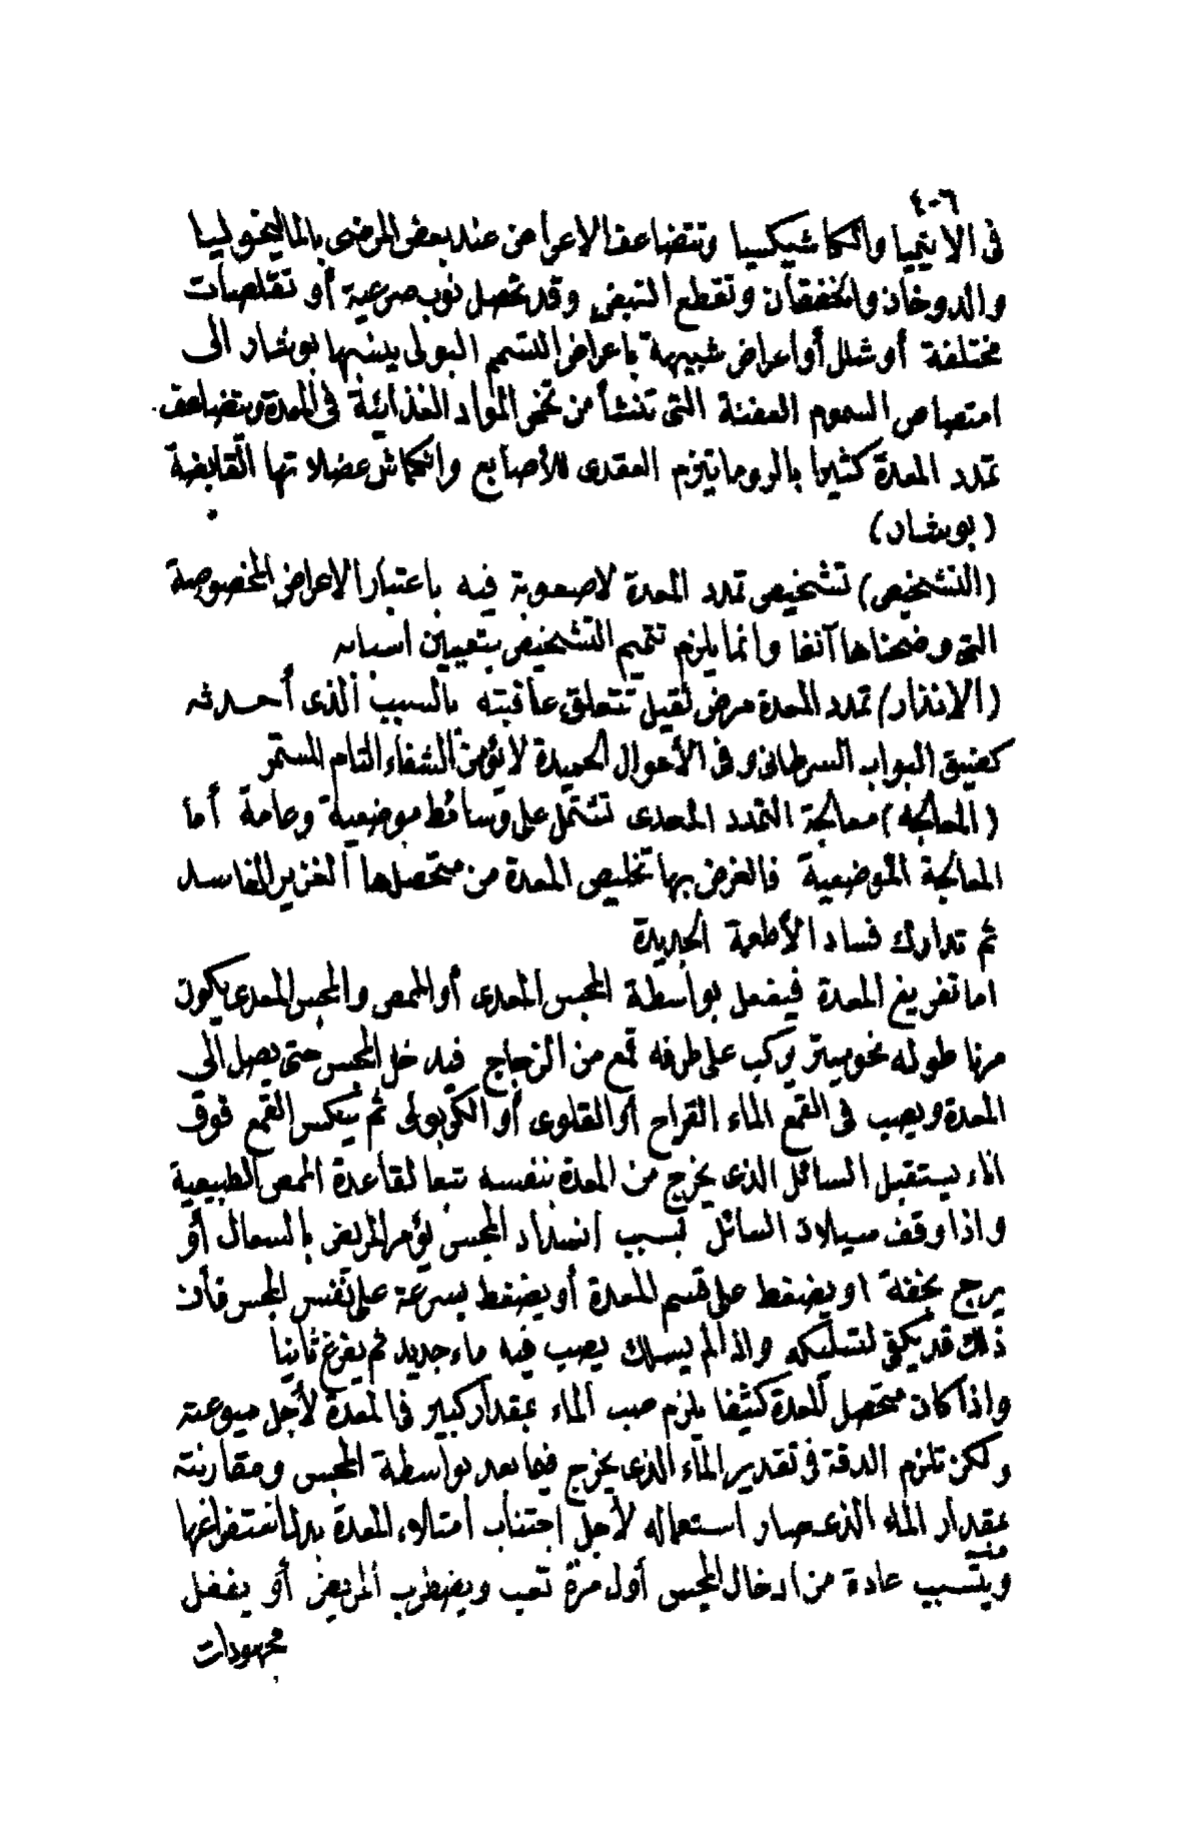 ٤٠٦
فى الانيميا والكاشيكسيا وتتضاعف الاعراض عند بعض المرضى بالماليخوليا
والدوخان والخفقان وتقطع النبض وقد تحصل نوب صرعية أو تقلصات
مختلفة أو شلل أو اعراض شبيهة باعراض التسمم البولى ينسبها بوشار الى
امتصاص السموم العفنة التى تنشأ من تخمر المواد الغذائية فى المعدة ويتضاعف
تمدد المعدة كثيرا بالروماتيزم العقدى للأصابع وانكماش عضلاتها القابضة
(بوشار)
(التشخيص) تشخيص تمدد المعدة لاصعوبة فيه باعتبار الاعراض المخصوصة
التى وضحناها آنفا وانما يلزم تتميم التشخيص بتعيين اسبابه
(الانذار) تمدد المعدة مرض ثقيل تتعلق عاقبته بالسبب الذى أحدثه
كضيق البواب السرطانى وفى الأحوال الحميدة لا يؤمن الشفاء التام المستمر
(المعالجة) معالجة التمدد المعدى تشتمل على وسائط موضعية وعامة أما
المعالجة الموضعية فالغرض بها تخليص المعدة من متحصلها الغزير الفاسد
ثم تدارك فساد الأطعمة الجديدة
اما تفريغ المعدة فيفعل بواسطة المجس المعدى أو الممص والمجس المعدى يكون
مرنا طوله نحو ميتر يركب على طرفه قمع من الزجاج فيدخل المجس حتى يصل الى
المعدة ويصب فى القمع الماء القراح أو القلوى أو الكربولى ثم ينكس القمع فوق
اناء يستقبل السائل الذى يخرج من المعدة بنفسه تبعا لقاعدة الممص الطبيعية
واذا وقف سيلان السائل بسبب انسداد المجس يؤمر المريض بالسعال أو
يرج بخفة او يضغط على قسم المعدة أو يضغط بسرعة على نفس المجس فأن
ذلك قد يكفى لتسليكه واذا لم يسلك يصب فيه ماء جديد ثم يفرغ ثانيا
واذا كان متحصل المعدة كثيفا يلزم صب الماء بمقدار كبير فى المعدة لأجل ميوعته
ولكن تلزم الدقة فى تقدير الماء الذى يخرج فيما بعد بواسطة المجس ومقارنته
بمقدار الماء الذى صار استعماله لأجل اجتناب امتلاء المعدة بدل استفراغها
منه
ويتسبب عادة من ادخال المجس أول مرة تعب ويضطرب المريض أو يفعل
مجهودات